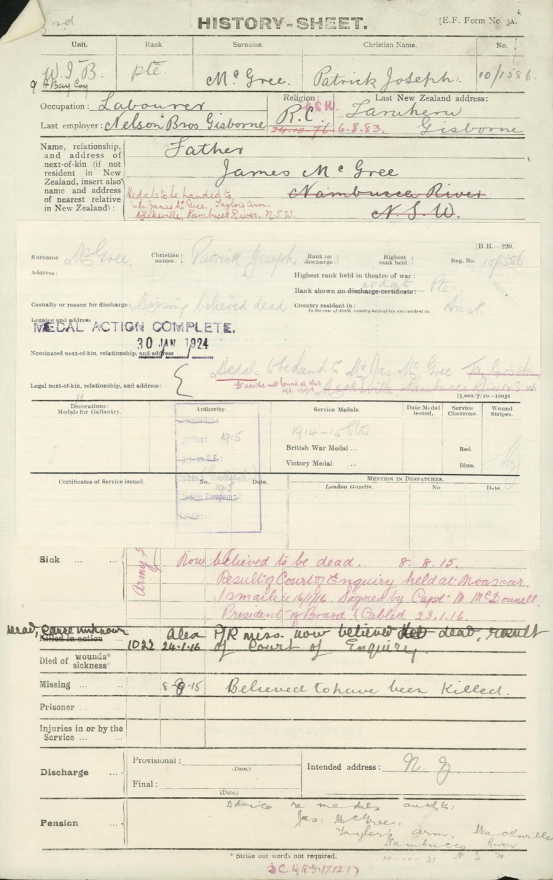 HISTORY-SHEET.
[E.F. Form No. 3A.
Unit. Rank Surname. Christian Name. No.
W. I. B. Pte Mc Gree. Patrick Joseph. 10/1586.
9 H. Bay Coy
Occupation: Labourer Religion: R.C. Last New Zealand address:
Last employer: Nelson Bros Gisborne 6.8.83. Taruheru Gisborne
Name, relationship, and address of next-of-kin (if not resident in New Zealand, insert also name and address of nearest relative in New Zealand):
Father
James Mc Gree
Nambucca River
N.S.W.
Medals to be handed to
James McGree, Taylors Arm,
Nambucca River, N.S.W.
[B.R.—220.
Surname Mc Gree Christian names: Patrick Joseph Rank on discharge: Highest rank held: Reg. No. 10/1586
Address:
Highest rank held in theatre of war:
Rank shown on discharge certificate: Pte
Casualty or reason for discharge: Missing believed dead Country resident in: Aust.
In the case of death, country in which next-of-kin resided
MEDAL ACTION COMPLETE.
30 JAN 1924
Nominated next-of-kin, relationship, and address
Legal next-of-kin, relationship, and address:
Decorations:
Medals for Gallantry.
Authority. Service Medals. Date Medal issued. Service Chevrons. Wound Stripes.
1914-15 Star
British War Medal ... Red.
Victory Medal ... Blue.
Certificates of Service issued. No. Date. MENTION IN DESPATCHES.
London Gazette. No. Date.
Sick ... Now believed to be dead. 8.8.15.
Result of Court of Enquiry held at Moascar,
Ismailia 16/1/16. Signed by Capt. McDonnell.
President of Board. (Cabled 23.1.16.
Killed in action Alea P/R miss. now believed dead, result
1022 24-1-16 of Court of Enquiry.
Died of wounds* sickness*
Missing ... 8-8-15 Believed to have been Killed.
Prisoner ...
Injuries in or by the Service ...
Discharge ... Provisional: (Date) Intended address: N. Z.
Final: (Date)
Pension ... Advice re medals
Jas. McGree,
Taylors Arm, Macksville
Nambucca River
N S W
* Strike out words not required.